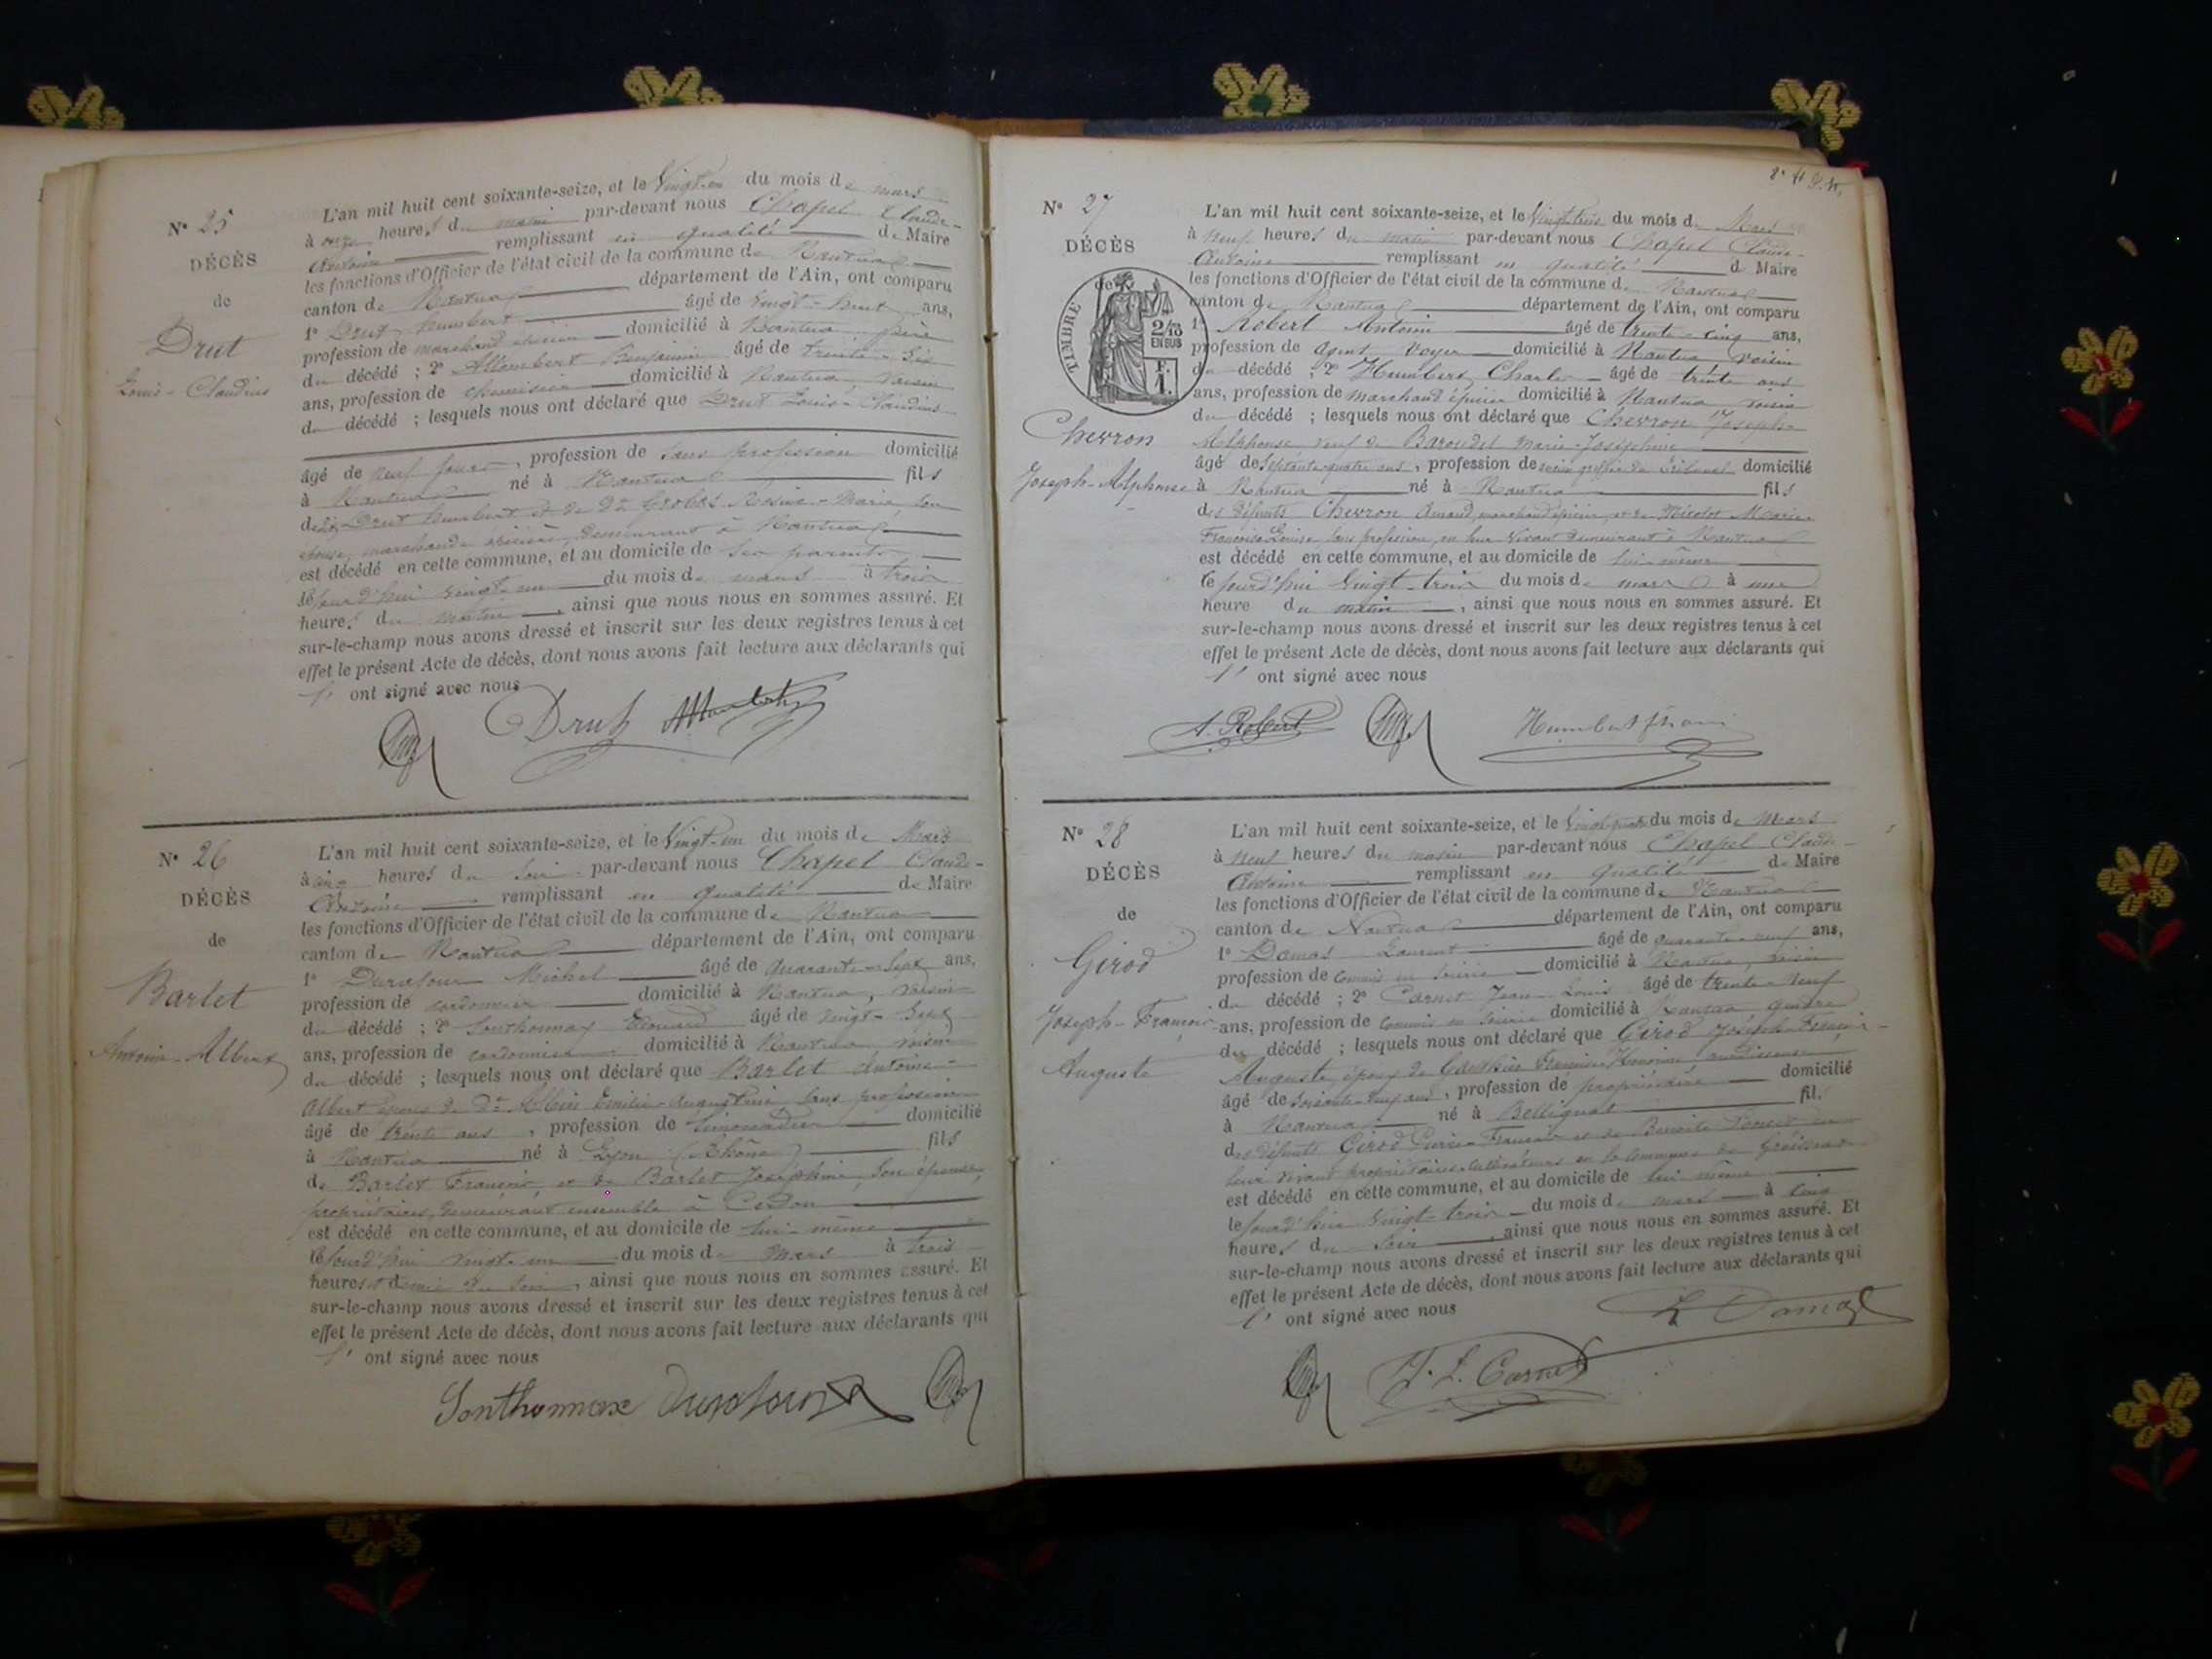 N° 25
DÉCÈS
de
Drut
Louis-Claudius
L'an mil huit cent soixante-seize, et le Vingt-un du mois de mars
à onze heures du matin par-devant nous Chapel Claude-
Antoine remplissant en qualité de Maire
les fonctions d'Officier de l'état civil de la commune de Nantua
canton de Nantua département de l'Ain, ont comparu
1° Drut Humbert âgé de vingt-huit ans,
profession de marchand épicier domicilié à Nantua, père
du décédé ; 2° Allombert Benjamin âgé de trente-six
ans, profession de domicilié à Nantua, voisin
du décédé ; lesquels nous ont déclaré que Drut Louis-Claudius
âgé de neuf jours, profession de sans profession domicilié
à Nantua né à Nantua fils
de Drut Humbert et de De Grobas Rosine-Marie, son
épouse, marchande épicière, demeurant à Nantua
est décédé en cette commune, et au domicile de ses parents,
le jourd'hui vingt-un du mois de mars à trois
heures du matin, ainsi que nous nous en sommes assuré. Et
sur-le-champ nous avons dressé et inscrit sur les deux registres tenus à cet
effet le présent Acte de décès, dont nous avons fait lecture aux déclarants qui
l' ont signé avec nous
Drut
N° 26
DÉCÈS
de
Barlet
Antoine-Albert
L'an mil huit cent soixante-seize, et le Vingt-un du mois de Mars
à cinq heures du soir par-devant nous Chapel Claude-
Antoine remplissant en qualité de Maire
les fonctions d'Officier de l'état civil de la commune de Nantua
canton de Nantua département de l'Ain, ont comparu
1° Durafour Michel âgé de quarante-sept ans,
profession de cordonnier domicilié à Nantua, voisin
du décédé ; 2° Sonthonnax Edouard âgé de vingt-sept
ans, profession de cordonnier domicilié à Nantua voisin
du décédé ; lesquels nous ont déclaré que Barlet Antoine-
Albert époux de De Albin Emilie-Augustine sans profession
âgé de trente ans, profession de limonadier domicilié
à Nantua né à Lyon (Rhône) fils
de Barlet François, et de Barlet Joséphine, son épouse,
propriétaires, demeurant ensemble à Cerdon
est décédé en cette commune, et au domicile de lui-même
le jourd'hui vingt-un du mois de Mars à trois
heures et demie du soir, ainsi que nous nous en sommes assuré. Et
sur-le-champ nous avons dressé et inscrit sur les deux registres tenus à cet
effet le présent Acte de décès, dont nous avons fait lecture aux déclarants qui
l' ont signé avec nous
Sonthonnax Durafour
N° 27
DÉCÈS
de
TIMBRE
2/10
EN SUS
F.
1.
Chevron
Joseph-Alphonse
L'an mil huit cent soixante-seize, et le Vingt-trois du mois de Mars
à neuf heures du matin par-devant nous Chapel Claude-
Antoine remplissant en qualité de Maire
les fonctions d'Officier de l'état civil de la commune de Nantua
canton de Nantua département de l'Ain, ont comparu
1° Robert Antoine âgé de trente-cinq ans,
profession de agent voyer domicilié à Nantua, voisin
du décédé ; 2° Humbert Charles âgé de trente ans
ans, profession de marchand épicier domicilié à Nantua voisin
du décédé ; lesquels nous ont déclaré que Chevron Joseph-
Alphonse veuf de Baroudel Marie-Joséphine
âgé de septante-quatre ans, profession de ancien greffier du tribunal domicilié
à Nantua né à Nantua fils
des défunts Chevron Amand, marchand épicier, et de Nicolot Marie-
Françoise-Louise sans profession, en leur vivant demeurant à Nantua
est décédé en cette commune, et au domicile de lui-même
le jourd'hui vingt-trois du mois de mars à une
heure du matin, ainsi que nous nous en sommes assuré. Et
sur-le-champ nous avons dressé et inscrit sur les deux registres tenus à cet
effet le présent Acte de décès, dont nous avons fait lecture aux déclarants qui
l' ont signé avec nous
A. Robert Humbert
N° 28
DÉCÈS
de
Girod
Joseph-François
Auguste
L'an mil huit cent soixante-seize, et le Vingt-quatre du mois de Mars
à neuf heures du matin par-devant nous Chapel Claude-
Antoine remplissant en qualité de Maire
les fonctions d'Officier de l'état civil de la commune de Nantua
canton de Nantua département de l'Ain, ont comparu
1° Damas Laurent âgé de quarante-neuf ans,
profession de commis en soierie domicilié à Nantua, voisin
du décédé ; 2° Carnet Jean-Louis âgé de trente-neuf
ans, profession de commis en soierie domicilié à Nantua gendre
du décédé ; lesquels nous ont déclaré que Girod Joseph-François-
Auguste, époux de Gauthier Françoise-Honorine
âgé de soixante-neuf ans, profession de propriétaire domicilié
à Nantua né à Bellignat fils
des défunts Girod Pierre-François et de Benoite en
leur vivant propriétaires-cultivateurs en la commune de Groissiat
est décédé en cette commune, et au domicile de lui-même
le jourd'hui vingt-trois du mois de mars à cinq
heures du soir, ainsi que nous nous en sommes assuré. Et
sur-le-champ nous avons dressé et inscrit sur les deux registres tenus à cet
effet le présent Acte de décès, dont nous avons fait lecture aux déclarants qui
l' ont signé avec nous
L Damas
J. L. Carnet